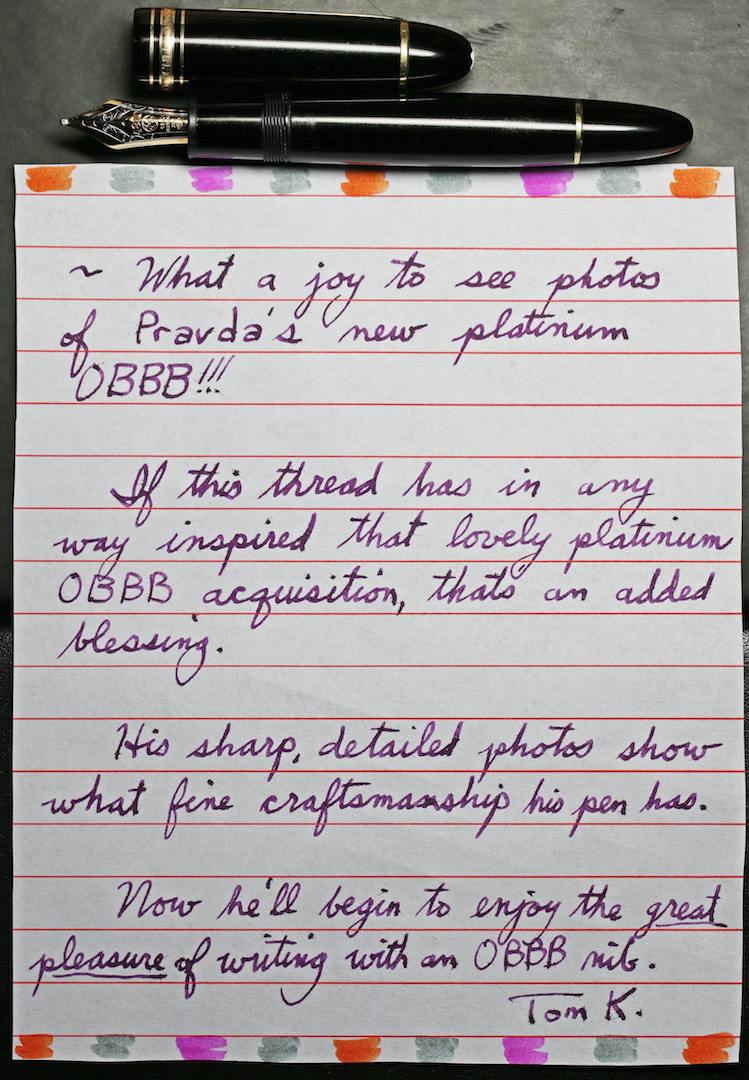 ~ What a joy to see photos
of Pravda's new platinum
OBBB!!!
If this thread has in any
way inspired that lovely platinum
OBBB acquisition, that's an added
blessing.
His sharp, detailed photos show
what fine craftsmanship his pen has.
Now he'll begin to enjoy the great
pleasure of writing with an OBBB nib.
Tom K.